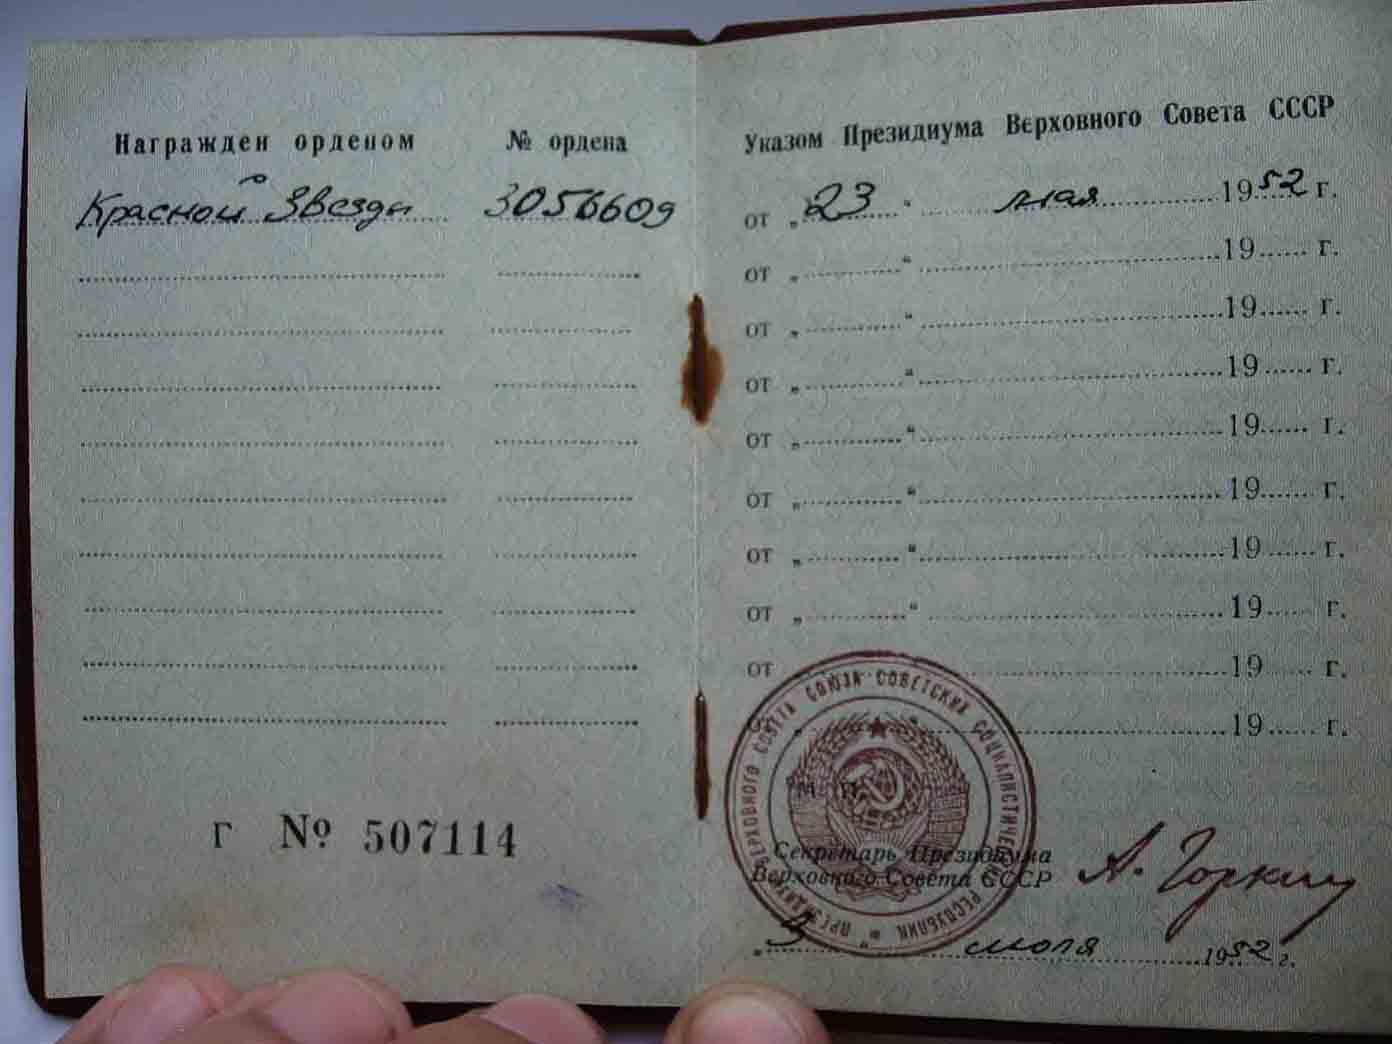 Награжден орденом № ордена
Красной Звезды 3056609
Г № 507114
Указом Президиума Верховного Совета СССР
от „23“ мая 1952 г.
от „ “ 19 г.
от „ “ 19 г.
от „ “ 19 г.
от „ “ 19 г.
от „ “ 19 г.
от „ “ 19 г.
от „ “ 19 г.
от 19 г.
19 г.
ПРЕЗИДИУМ ВЕРХОВНОГО СОВЕТА СОЮЗА СОВЕТСКИХ СОЦИАЛИСТИЧЕСКИХ РЕСПУБЛИК
М. П.
Секретарь Президиума
Верховного Совета СССР А. Горкин
„ “ июля 1952 г.